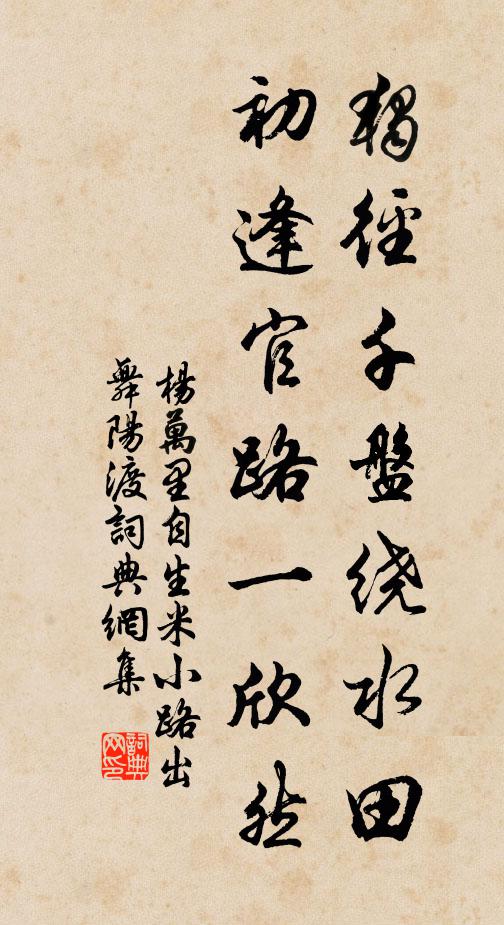 獨徑千盤绕水田
初逢官路一欣然
楊萬里自生米小路出
舞陽渡詞典網集
詞典
网印